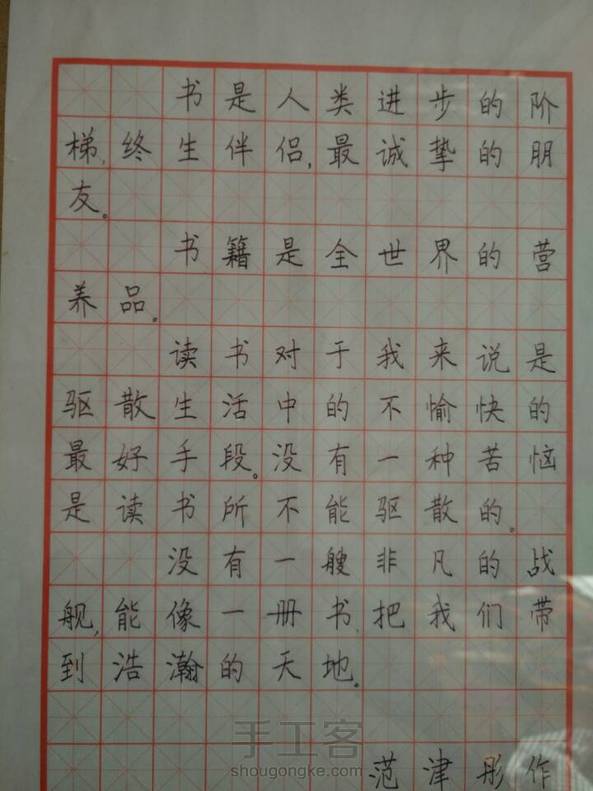 书是人类进步的阶
梯,终生伴侣,最诚挚的朋
友。
书籍是全世界的营
养品。
读书对于我来说是
驱散生活中的不愉快的
最好手段。没有一种苦恼
是读书所不能驱散的。
没有一艘非凡的战
舰,能像一册书把我们带
到浩瀚的天地。
手工客
shougongke.com
范津彤作